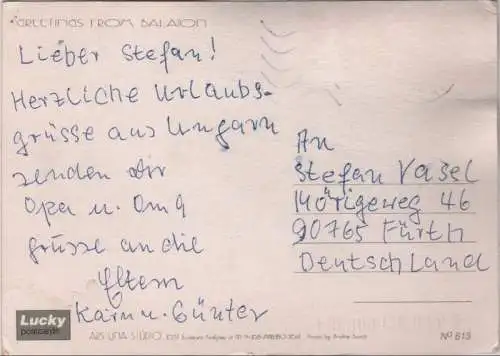 GREETINGS FROM BALATON
Lieber Stefan!
Herzliche Urlaubs-
grüsse aus Ungarn
senden dir
Opa u. Oma
grüsse an die
Eltern
Karin u. Günter
An
Stefan Vasel
Mörigeweg 46
90765 Fürth
Deutschland
Lucky
postcards
ARS UNA STUDIO
No 613